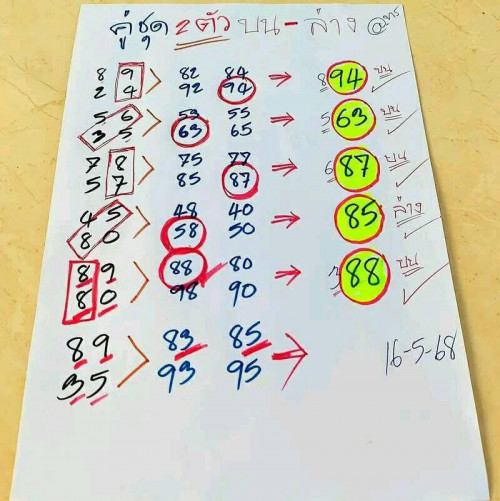 คู่ชุด 2ตัว บน - ล่าง
8 9 82 84 → 8 94 บน
2 4 92 94
5 6 53 55 → 5 63 บน
3 5 63 65
7 8 75 77 → 6 87 บน
5 7 85 87
4 5 48 40 → 85 ล่าง
8 0 58 50
8 9 88 80 → 88 บน
8 0 98 90
8 9 83 85 →
3 5 93 95
16-5-68